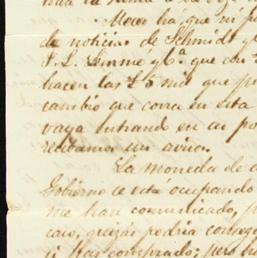 Meses há, que ni p
de noticias de Schmidt y
F. L. Linme y Ca. que con
hacen las £5 mil que p
cambio que corra en esta
vaya entrando en su po
recibamos su aviso.
La moneda de
Gobierno se esta ocupando
me han comunicado, p
caso, quizas podria conveg
si has comprado; pero